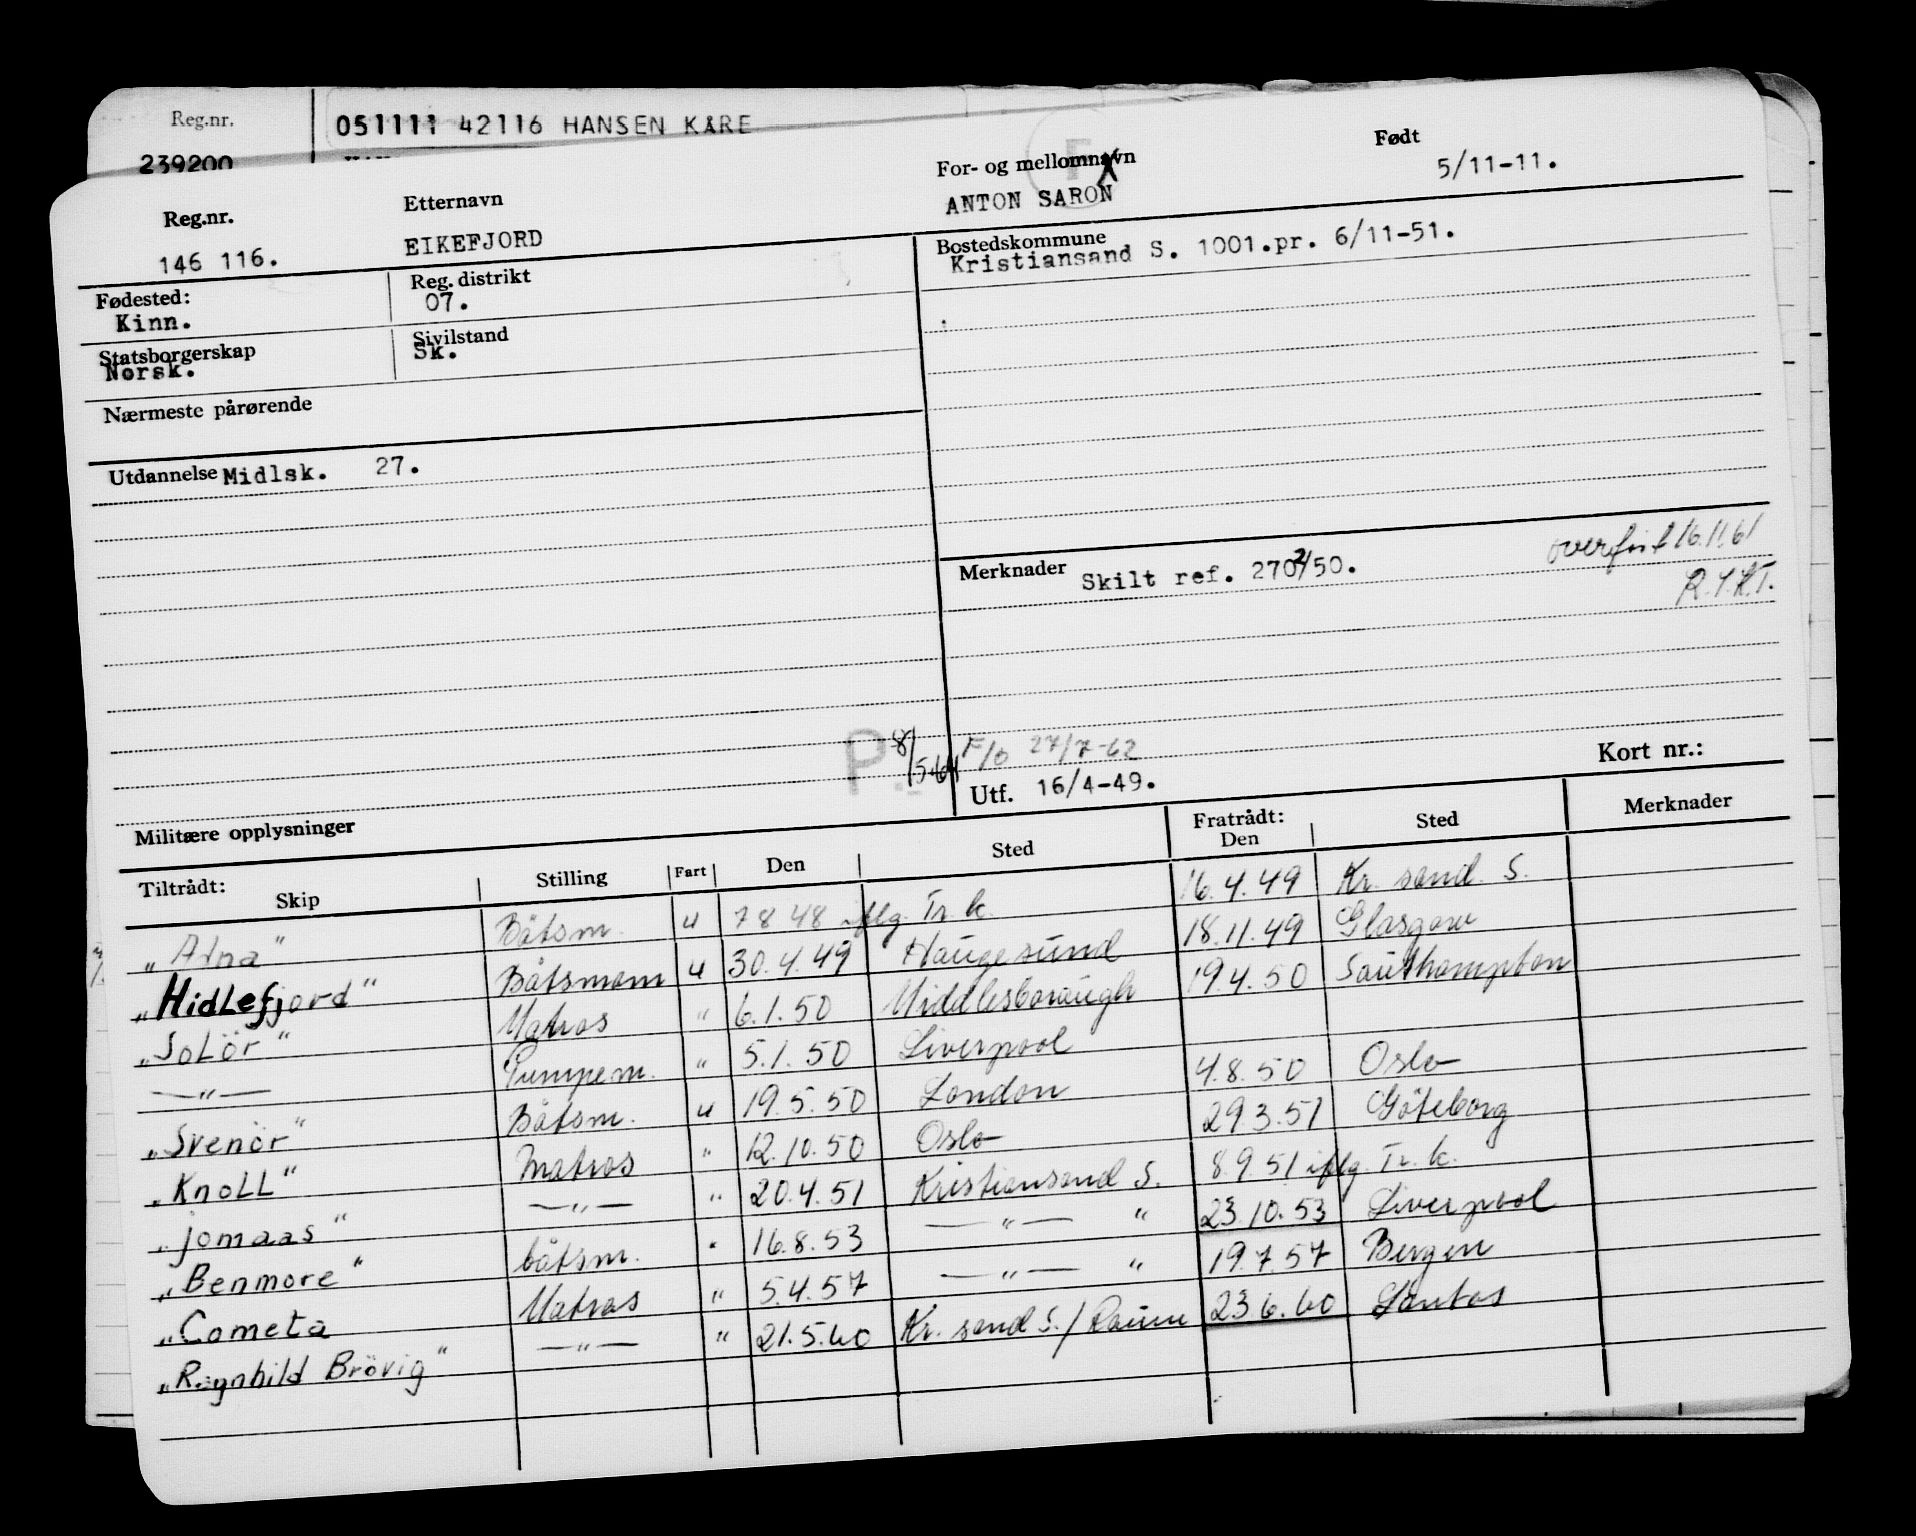 Reg.nr. 051111 42116 HANSEN KÅRE
239200
Reg.nr. Etternavn For- og mellomnavn Født
146 116. EIKEFJORD ANTON SARON 5/11-11.
Fødested: Reg. distrikt Bostedskommune
Kinn. 07. Kristiansand S. 1001.pr. 6/11-51.
Statsborgerskap Sivilstand
Norsk. Sk.
Nærmeste pårørende
Utdannelse Midlsk. 27.
Merknader Skilt ref. 2702/50. overført 16.11.61
P 8/5-61 F/o 27/7-62
Utf. 16/4-49. Kort nr.:
Militære opplysninger
Tiltrådt: Fratrådt:
Skip Stilling Fart Den Sted Den Sted Merknader
"Atna" Båtsm. u 7 8 48 iflg. Tr. k. 16.4.49 Kr. sand. S.
"Hidlefjord" Båtsmann u 30.4.49 Haugesund 18.11.49 Glasgow
"Solör" Matros " 6.1.50 Middlesborough 19.4.50 Southampton
—"— Pumpem. " 5.1.50 Liverpool
"Svenör" Båtsm. u 19.5.50 London 4.8.50 Oslo
"Knoll" Matros " 12.10.50 Oslo 29.3.51 Göteborg
"Jomaas" —"— " 20.4.51 Kristiansand S. 8.9.51 iflg. Tr. k.
"Benmore" båtsm. " 16.8.53 —"— " 23.10.53 Liverpool
"Cometa Matros " 5.4.57 —"— " 19.7.57 Bergen
"Ragnhild Brövig" —"— " 21.5.60 Kr. sand S./ 23.6.60 Santos